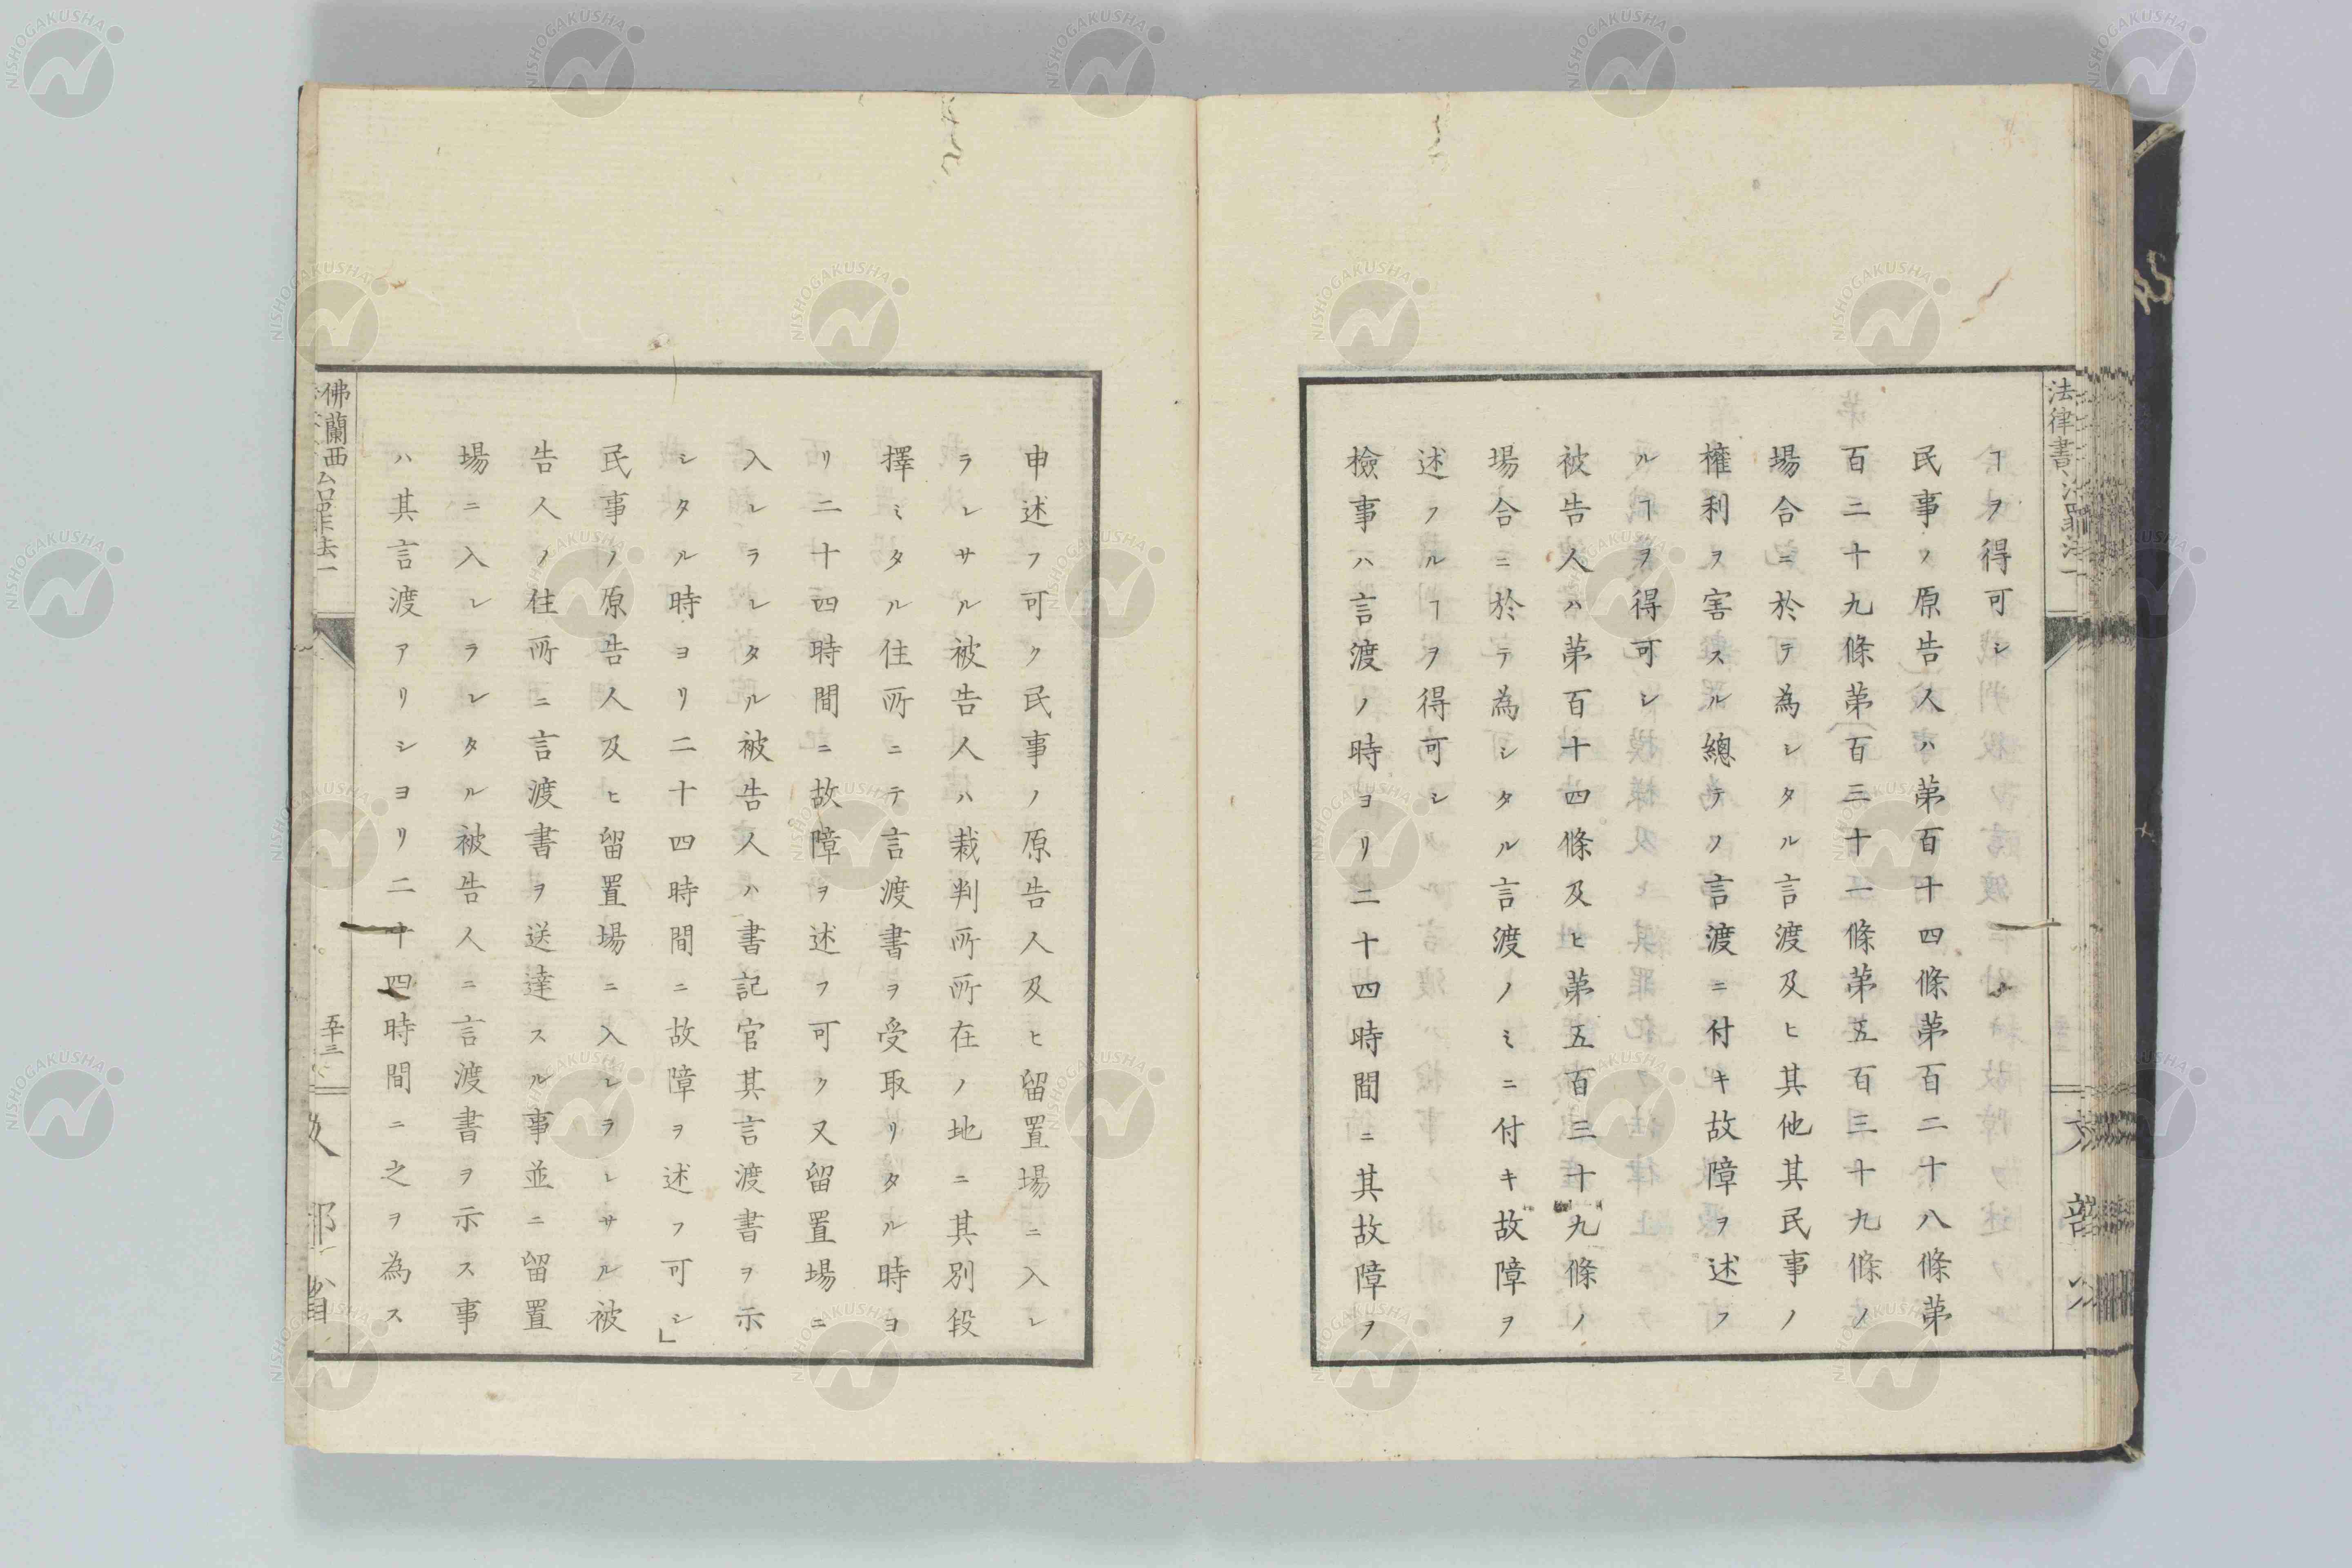 ヿヲ得可シ
民事ノ原告人ハ第百十四條第百二十八條第
百二十九條第百三十一條第五百三十九條ノ
場合ニ於テ為シタル言渡及ヒ其他其民事ノ
權利ヲ害スル總テノ言渡ニ付キ故障ヲ述フ
ルヿヲ得可シ
被告人ハ第百十四條及ヒ第五百三十九條ノ
場合ニ於テ為シタル言渡ノミニ付キ故障ヲ
述フルヿヲ得可シ
檢事ハ言渡ノ時ヨリ二十四時間ニ其故障ヲ
申述フ可ク民事ノ原告人及ヒ留置場ニ入レ
ラレサル被告人ハ裁判所所在ノ地ニ其別段
擇ミタル住所ニテ言渡書ヲ受取リタル時ヨ
リ二十四時間ニ故障ヲ述フ可ク又留置場ニ
入レラレタル被告人ハ書記官其言渡書ヲ示
シタル時ヨリ二十四時間ニ故障ヲ述フ可シ」
民事ノ原告人及ヒ留置場ニ入レラレサル被
告人ノ住所ニ言渡書ヲ送達スル事並ニ留置
場ニ入レラレタル被告人ニ言渡書ヲ示ス事
ハ其言渡アリシヨリ二十四時間ニ之ヲ為ス
佛蘭西
五十三
法律書
NISHOGAKUSHA